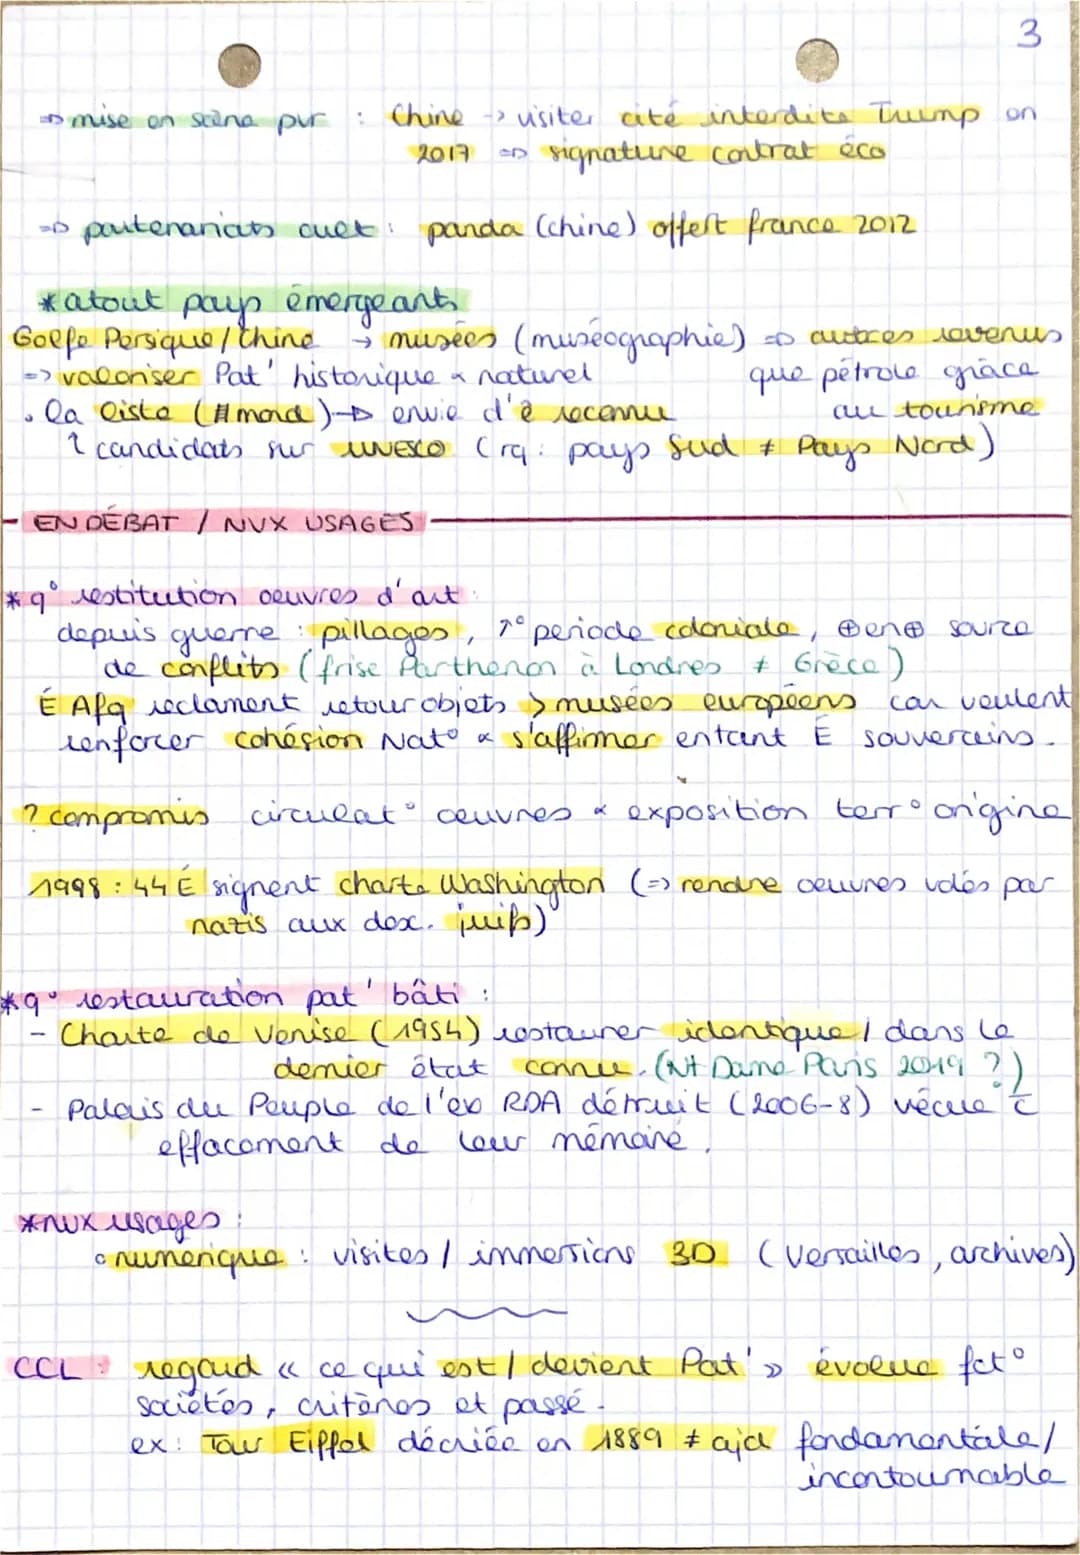 3
=> mise en scène pvr : Chine -> visiter cité interdite Trump en
2017 => signature contrat éco
=> partenariats cult : panda (chine) offert france 2012
* atout pays émergeants
Golfe Persique / Chine → musées (muséographie) => autres revenus
=> valoriser Pat' historique & naturel que pétrole grâce
. la liste (# mond) → envie d'ê reconnu au tourisme
candidats sur UNESCO (rq : pays Sud ≠ Pays Nord)
- EN DÉBAT / NVX USAGES
* q° restitution oeuvres d'art :
depuis guerre : pillages, ↑° periode coloniale, ⊕ en ⊕ source
de conflits (frise Parthenon à Londres ≠ Grèce)
É Afq reclament retour objets > musées européens car veulent
renforcer cohésion Nat° & s'affirmer entant É souverains.
? compromis circulat° oeuvres & exposition terr° origine
1998 : 44 É signent charte Washington (=> rendre oeuvres volés par
nazis aux dex. juifs)
* q° restauration pat' bâti :
- Charte de Venise (1954) restaurer identique / dans le
dernier état connu. (Nt Dame Paris 2019 ?)
- Palais du Peuple de l'ex RDA détruit (2006-8) vécue c̄
effacement de leur mémoire.
* nvx usages :
° numerique : visites / immersions 3D (Versailles, archives)
CCL : regard « ce qui est / devient Pat' » évolue fct°
sociétés, critères et passé.
ex : Tour Eiffel décriée en 1889 ≠ ajd fondamentale /
incontournable